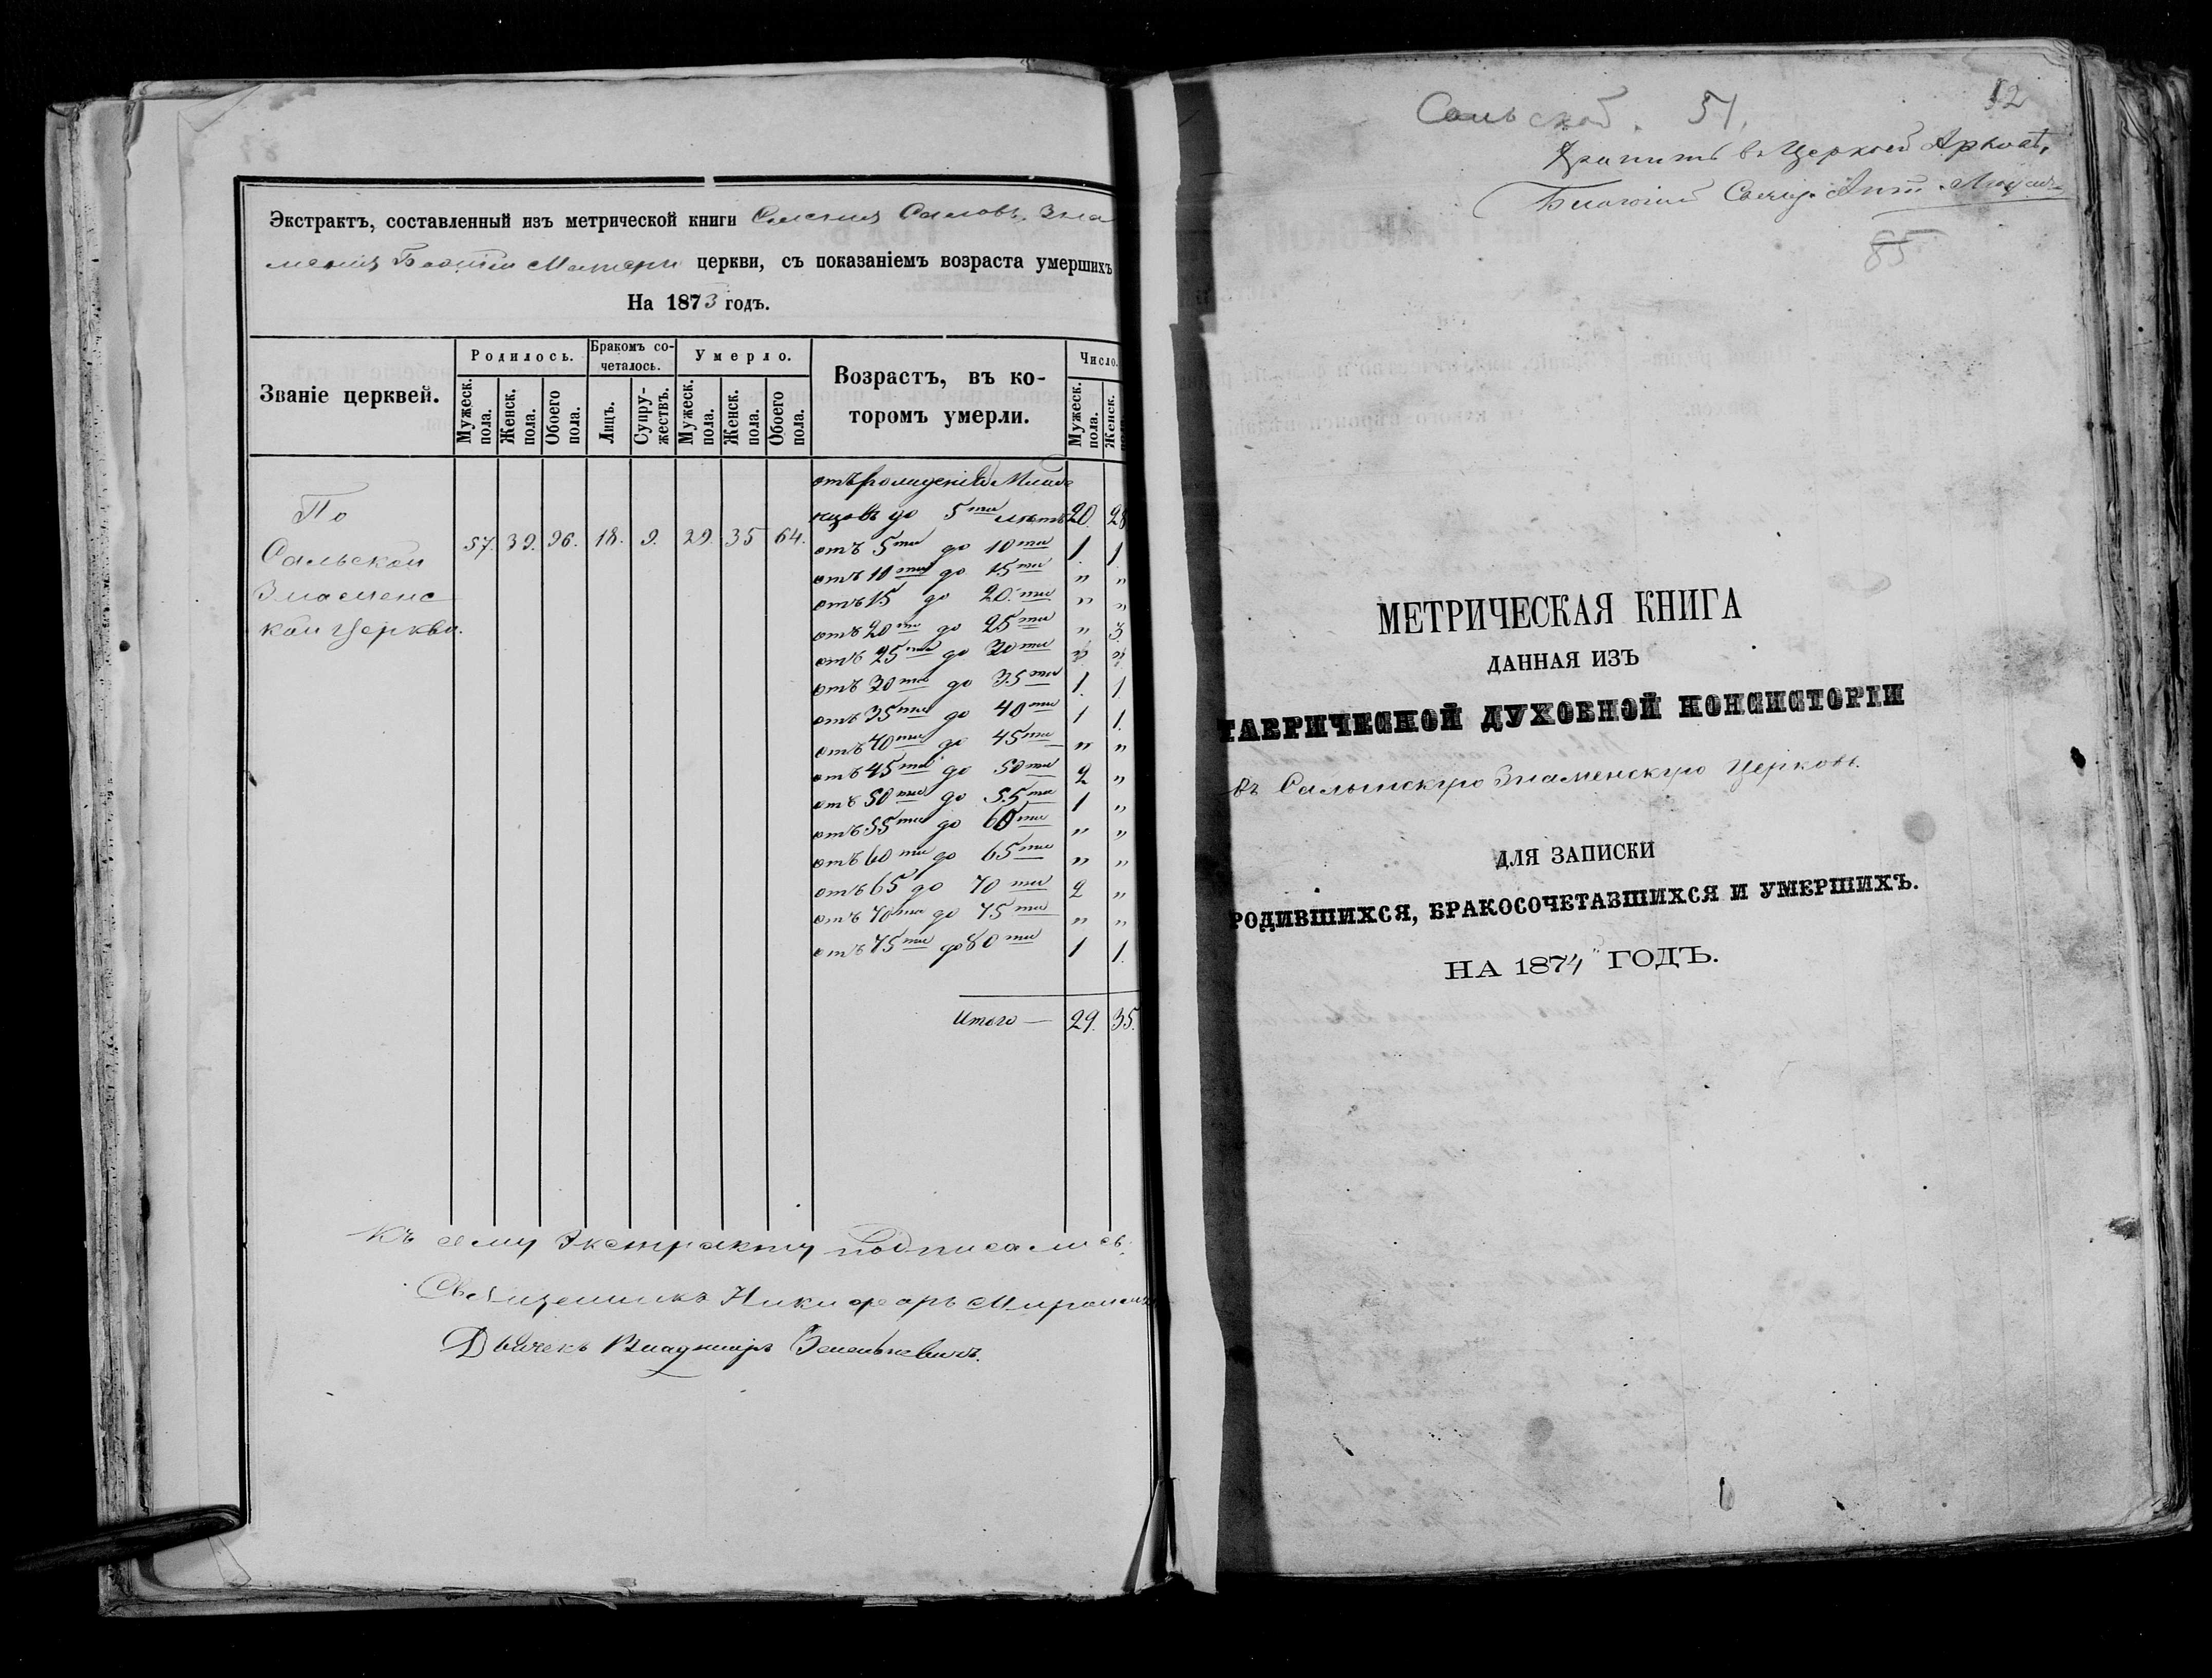 Экстрактъ, составленный изъ метрической книги Селенія Саловъ, Зна
менія Божіей Матери церкви, съ показаніемъ возраста умершихъ
На 1873 годъ.
Званіе церквей.
Родилось.
Бракомъ сочеталось.
Умерло.
Возрастъ, въ которомъ умерли.
Число.
Мужеск. пола.
Женск. пола.
Обоего пола.
Лицъ.
Супружествъ.
Мужеск. пола.
Женск. пола.
Обоего пола.
Мужеск. пола.
Женск.
По
Сальской
Знаменс
кой церкви.
57. 39. 96. 18. 9. 29. 35 64.
отъ рожденія Младе
нцовъ до 5ти лѣтъ 20. 28
отъ 5ти до 10ти 1. 1.
отъ 10ти до 15ти " "
отъ 15 до 20ти " "
отъ 20ти до 25ти " 3.
отъ 25ти до 30ти " "
отъ 30ти до 35ти 1. 1.
отъ 35ти до 40ти 1 1.
отъ 40ти до 45ти " "
отъ 45ти до 50ти 2 "
отъ 50ти до 55ти 1 "
отъ 55ти до 60ти " "
отъ 60ти до 65ти " "
отъ 65 до 70ти 2 "
отъ 70ти до 75ти " "
отъ 75ти до 80ти 1 1.
Итого — 29. 35.
Къ сему Экстракту подписались:
Священникъ Никифоръ
Дьячекъ Владимиръ
Сальской. 51.
52
85
МЕТРИЧЕСКАЯ КНИГА
ДАННАЯ ИЗЪ
ТАВРИЧЕСКОЙ ДУХОВНОЙ КОНСИСТОРІИ
въ Салынскую Знаменскую Церковь.
ДЛЯ ЗАПИСКИ
РОДИВШИХСЯ, БРАКОСОЧЕТАВШИХСЯ И УМЕРШИХЪ.
НА 1874 ГОДЪ.